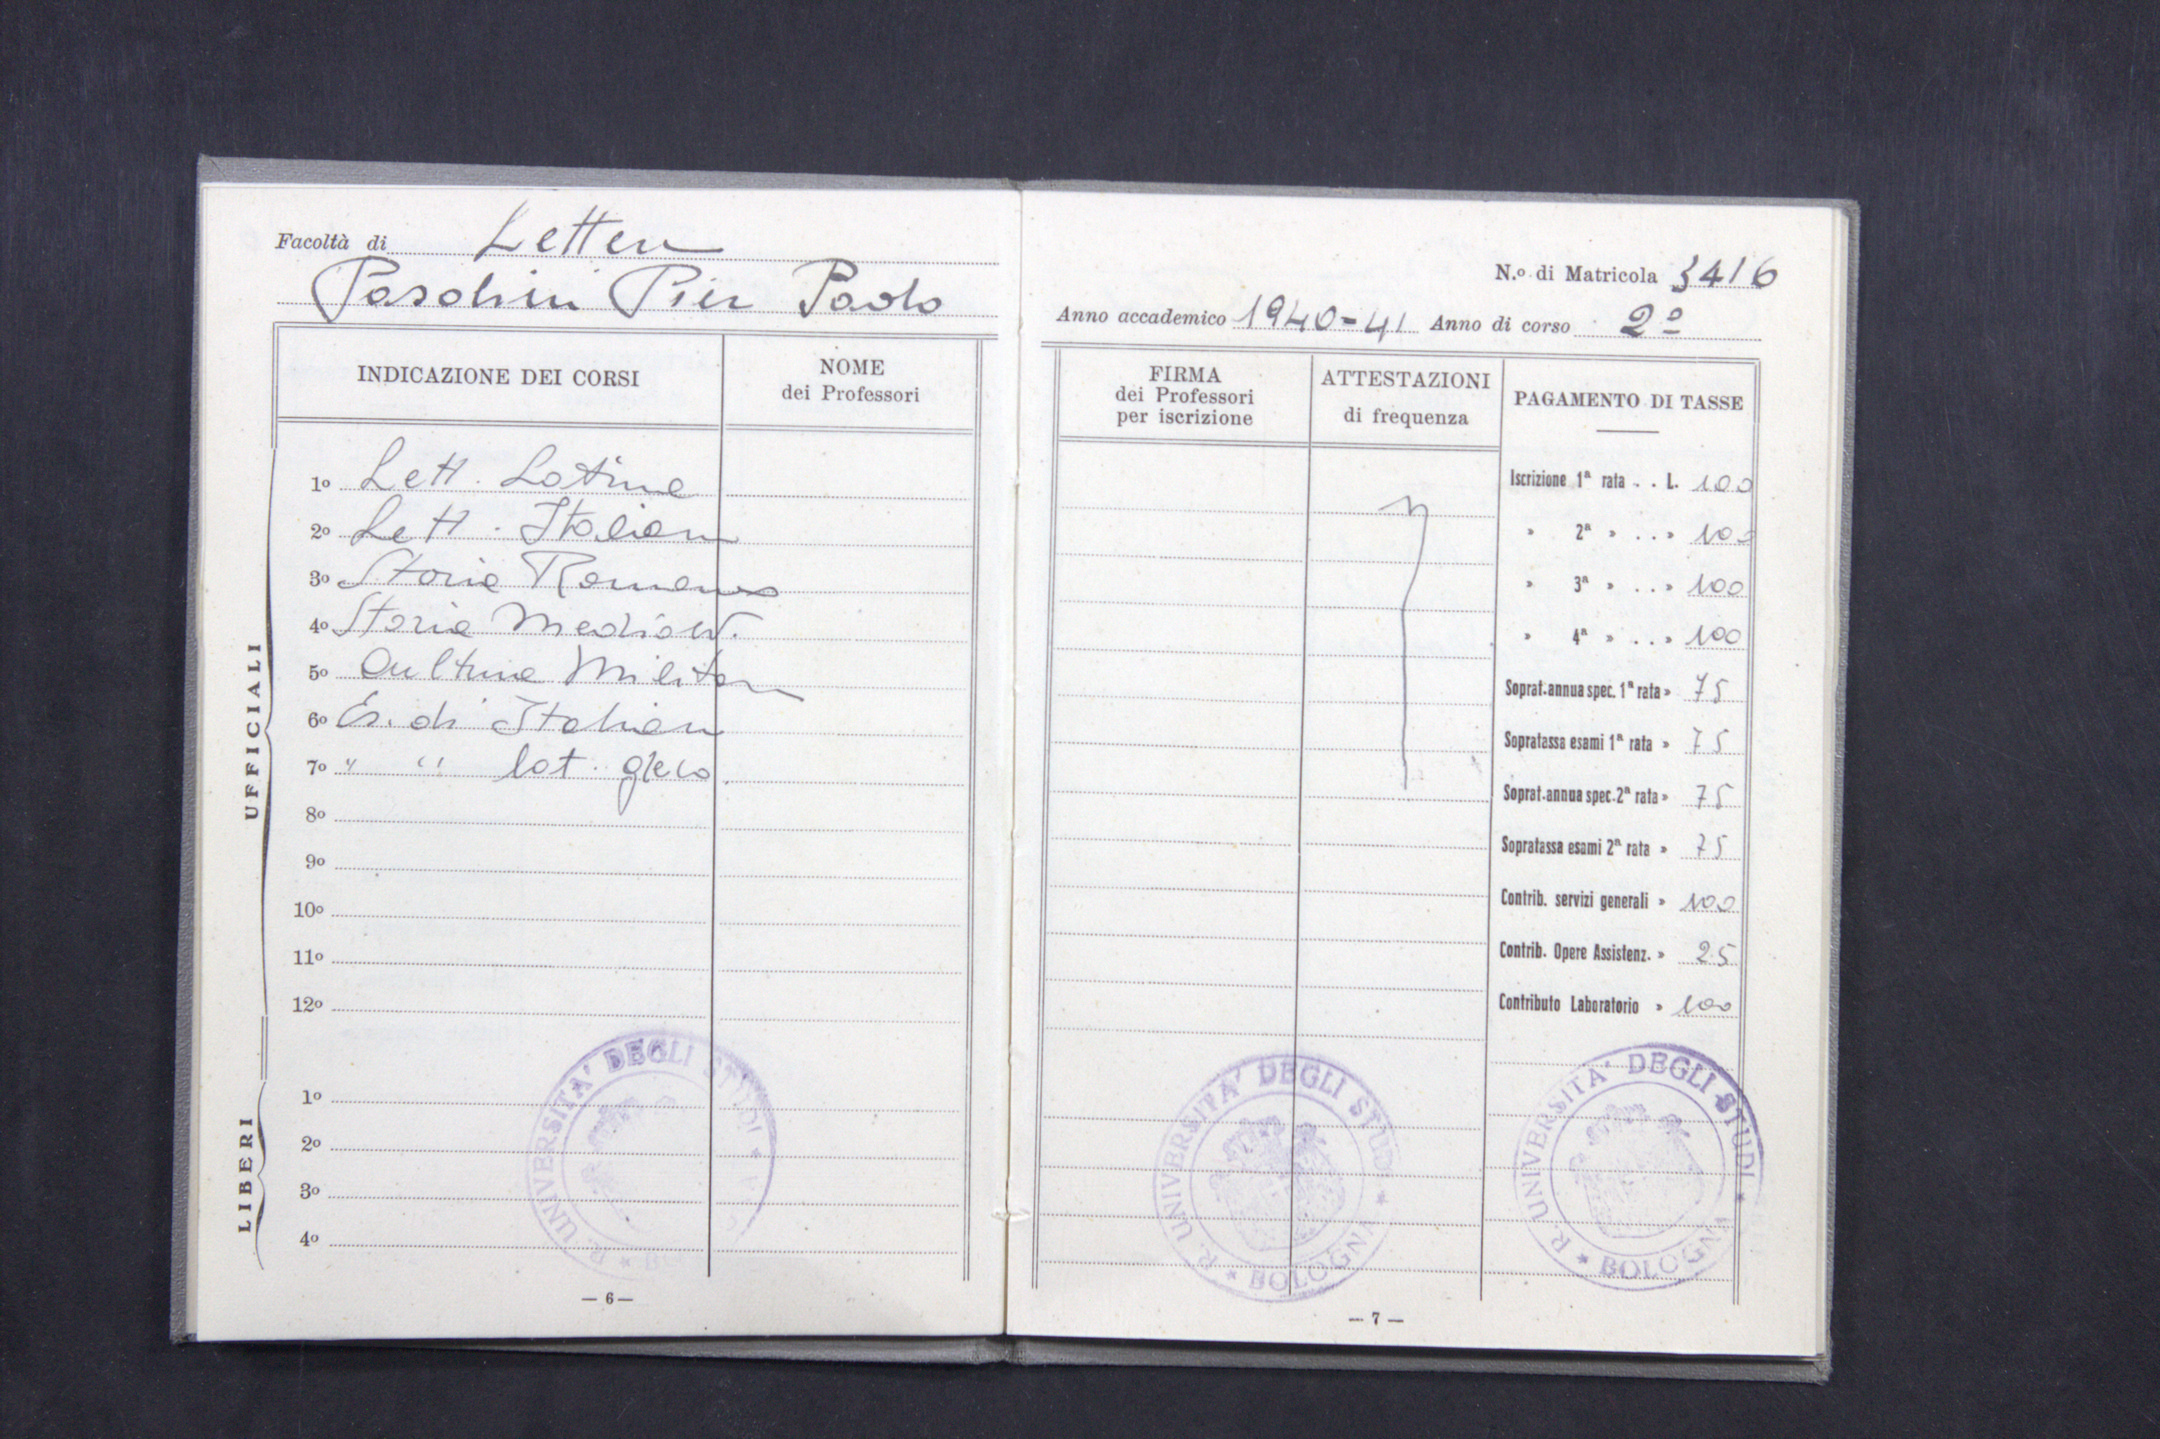 Facoltà di Lettere
Pasolini Pier Paolo
INDICAZIONE DEI CORSI
NOME
dei Professori
UFFICIALI
1º Lett. Latina
2º Lett. Italiana
3º Storia Romana
4º Storia Mediov.
5º Cultura Militare
6º Es. di Italiano
7º " " lat. greco
8º
9º
10º
11º
12º
LIBERI
1º
2º
3º
4º
R. UNIVERSITA' DEGLI STUDI
— 6 —
N.º di Matricola 3416
Anno accademico 1940-41 Anno di corso 2º
FIRMA
dei Professori
per iscrizione
ATTESTAZIONI
di frequenza
PAGAMENTO DI TASSE
Iscrizione 1ª rata . . L. 100
» 2ª » . . » 100
» 3ª » . . » 100
» 4ª » . . » 100
Soprat. annua spec. 1ª rata » 75
Sopratassa esami 1ª rata » 75
Soprat. annua spec. 2ª rata » 75
Sopratassa esami 2ª rata » 75
Contrib. servizi generali » 100
Contrib. Opere Assistenz. » 25
Contributo Laboratorio » 100
R. UNIVERSITA' DEGLI STUDI * BOLOGNA *
R. UNIVERSITA' DEGLI STUDI * BOLOGNA *
— 7 —